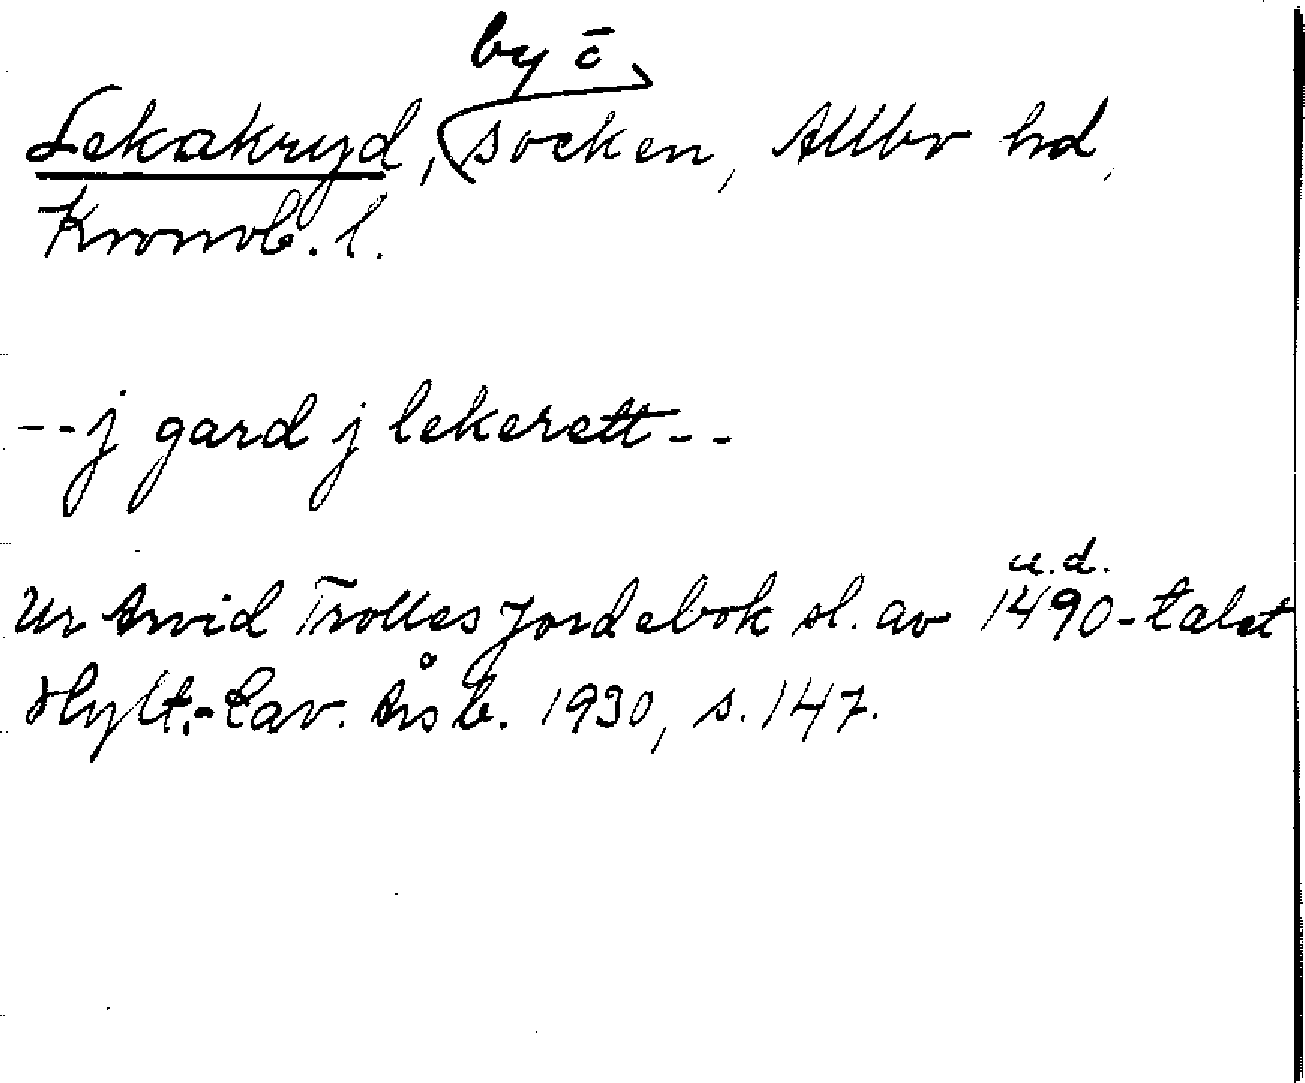 by o̅
Lekakryd, socken, Allbo hd,
Kronob. l.
--j gard j lekerett--
u.d.
Ur Arvid Trolles Jordebok sl. av 1490-talet
Hylt.-Cav. Årsb. 1930, s. 147.